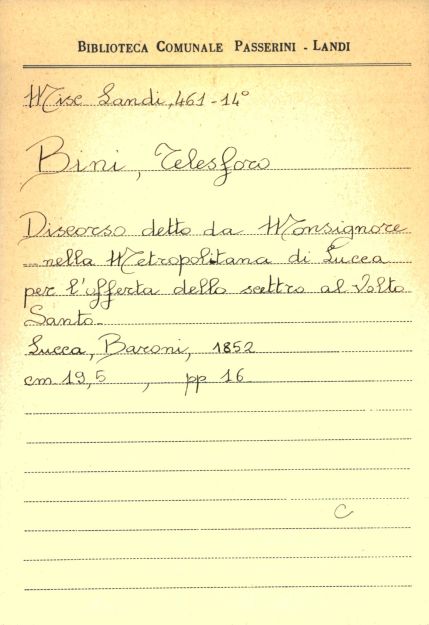 BIBLIOTECA COMUNALE PASSERINI - LANDI
Misc Landi, 461 - 14°
Bini, Telesforo
Discorso detto da Monsignore
nella Metropolitana di Lucca
per l'offerta dello scettro al Volto
Santo.
Lucca, Baroni, 1852
cm 19,5 , pp 16
C